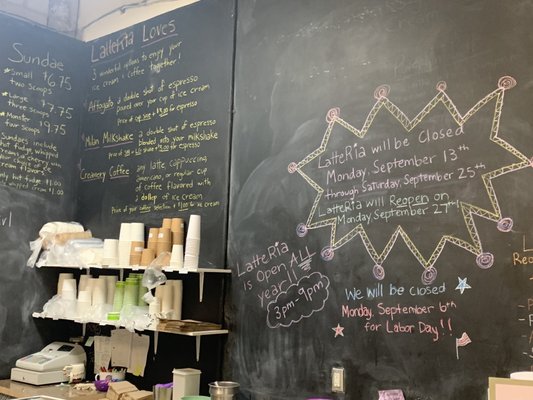 Sundae
*Small $6.75
two scoops
*Large $7.75
three scoops
*Monster $9.75
four scoops
Sundaes include
hot fudge
whipped cream
LatteRia Loves
3 wonderful options to enjoy your
ice cream & coffee together!
Affogato a double shot of espresso
poured over your cup of ice cream
for espresso
Milan Milkshake a double shot of espresso
blended into your milkshake
for espresso
Creamery Coffee any latte, cappuccino,
americano, or regular cup
of coffee flavored with
a dollop of ice cream
Price of your coffee selection + $1.00 for ice cream
LatteRia will be Closed
Monday, September 13th
through Saturday, September 25th
LatteRia will Reopen on
Monday September 27th
LatteRia
is Open ALL
year!!
3pm-9pm
We will be Closed
Monday, September 6th
for Labor Day!!